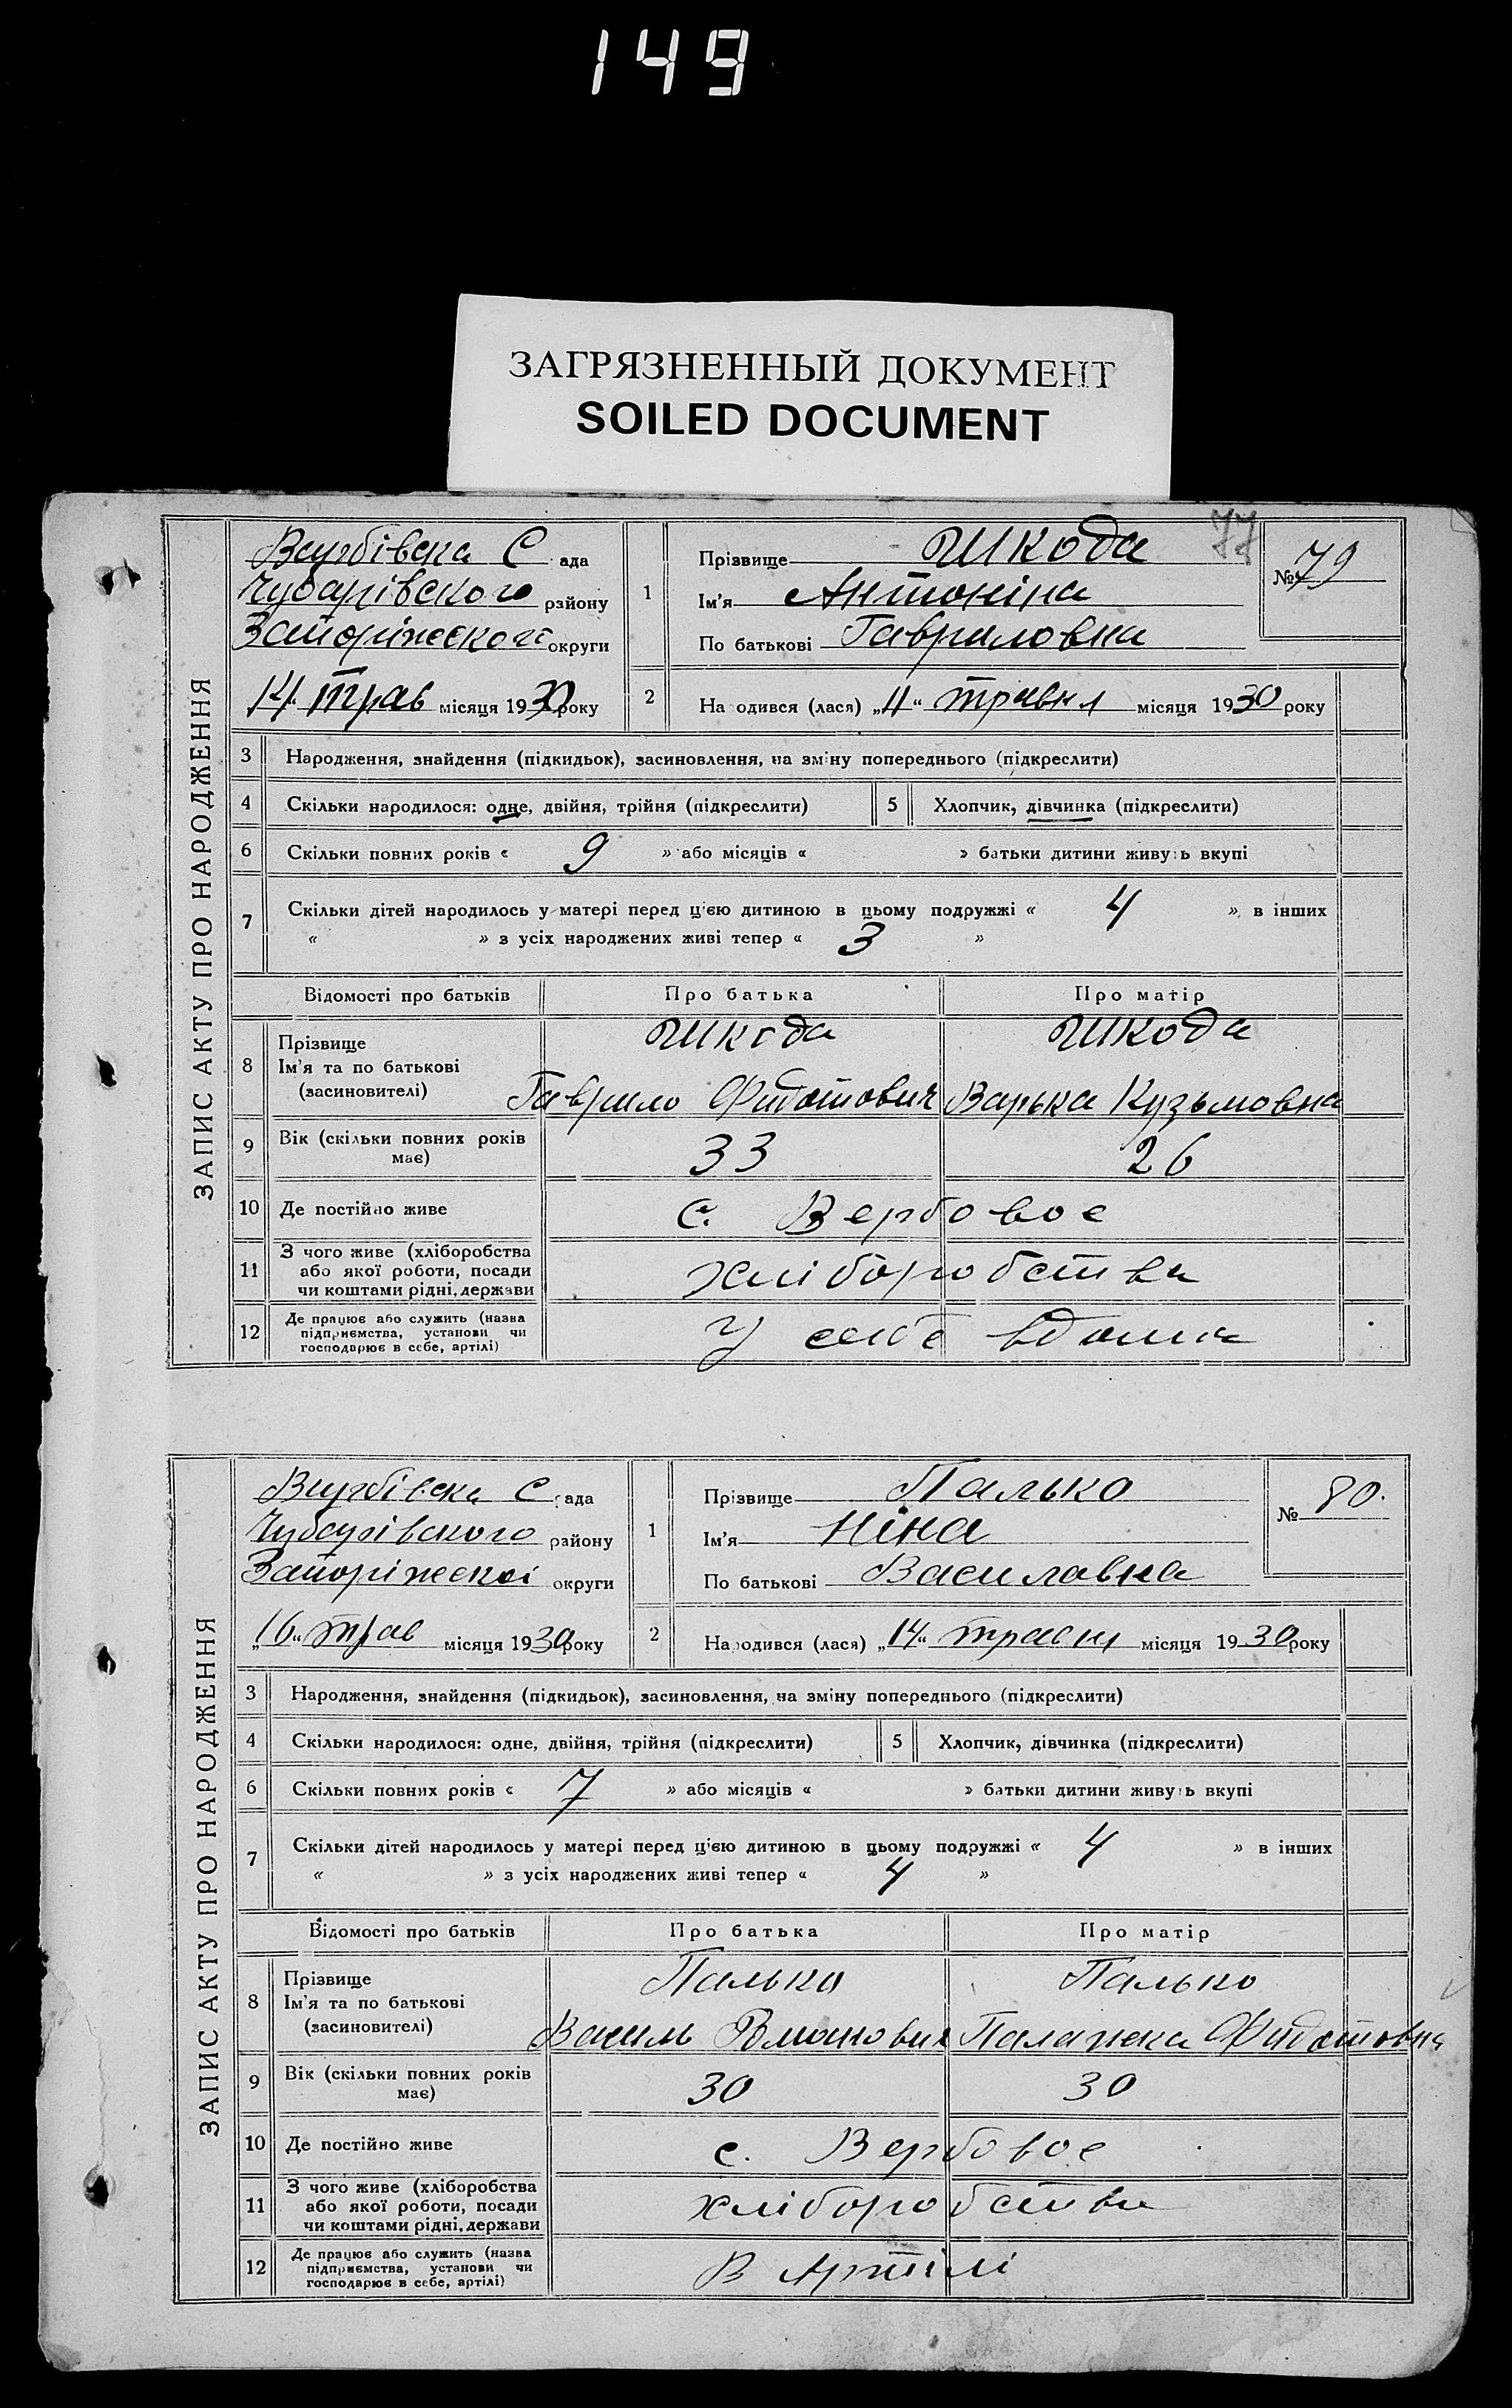 149
ЗАГРЯЗНЕННЫЙ ДОКУМЕНТ
SOILED DOCUMENT
77
ЗАПИС АКТУ ПРО НАРОДЖЕННЯ
Вербівська С рада
Чубарівського району
Запоріжської округи
14 трав місяця 1930 року
1
Прізвище Шкода
Ім'я Антоніна
По батькові Гавриловна
№ 79
2
Народився (лася) „11“ травня місяця 1930 року
3 Народження, знайдення (підкидьок), засиновлення, на зміну попереднього (підкреслити)
4 Скільки народилося: одне, двійня, трійня (підкреслити) 5 Хлопчик, дівчинка (підкреслити)
6 Скільки повних років « 9 » або місяців « » батьки дитини живуть вкупі
7 Скільки дітей народилось у матері перед цією дитиною в цьому подружжі « 4 » в інших
« » з усіх народжених живі тепер « 3 »
Відомості про батьків Про батька Про матір
8 Прізвище Шкода Шкода
Ім'я та по батькові
(засиновителі) Гаврило Фидотович Варька Кузьмовна
9 Вік (скільки повних років
має) 33 26
10 Де постійно живе с. Вербовое
11 З чого живе (хліборобства
або якої роботи, посади
чи коштами рідні, держави хліборобства
12 Де працює або служить (назва
підприємства, установи чи
господарює в себе, артілі) У себе вдома
ЗАПИС АКТУ ПРО НАРОДЖЕННЯ
Вербівська С рада
Чубарівського району
Запоріжскої округи
„16“ трав місяця 1930 року
1
Прізвище Палько
Ім'я Ніна
По батькові Василавна
№ 80.
2
Народився (лася) „14“ травня місяця 1930 року
3 Народження, знайдення (підкидьок), засиновлення, на зміну попереднього (підкреслити)
4 Скільки народилося: одне, двійня, трійня (підкреслити) 5 Хлопчик, дівчинка (підкреслити)
6 Скільки повних років « 7 » або місяців « » батьки дитини живуть вкупі
7 Скільки дітей народилось у матері перед цією дитиною в цьому подружжі « 4 » в інших
« » з усіх народжених живі тепер « 4 »
Відомості про батьків Про батька Про матір
8 Прізвище Палько Палько
Ім'я та по батькові
(засиновителі) Василь Палажка Фидотовна
9 Вік (скільки повних років
має) 30 30
10 Де постійно живе с. Вербовое
11 З чого живе (хліборобства
або якої роботи, посади
чи коштами рідні, держави хліборобства
12 Де працює або служить (назва
підприємства, установи чи
господарює в себе, артілі) В Артілі